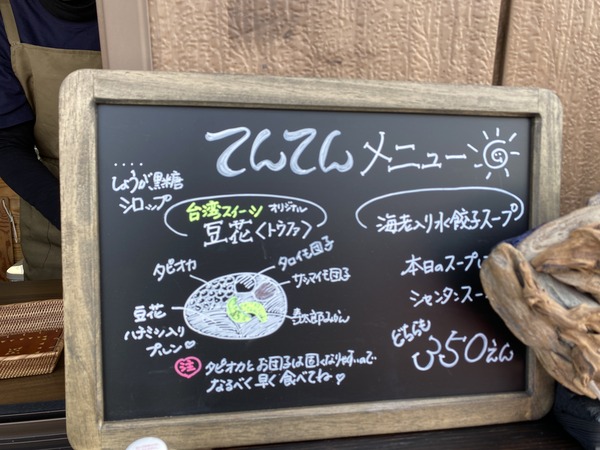 てんてんメニュー
しょうが黒糖
シロップ
台湾スイーツ オリジナル
豆花〈トウファ〉
タピオカ
タロイモ団子
サツマイモ団子
豆花
ハチミツ入り
プレン♡
注 タピオカとお団子は固くなりやすいので
なるべく早く食べてね♡
海老入り水餃子スープ
本日のスープ
シャンタンスー
どちらも
350えん